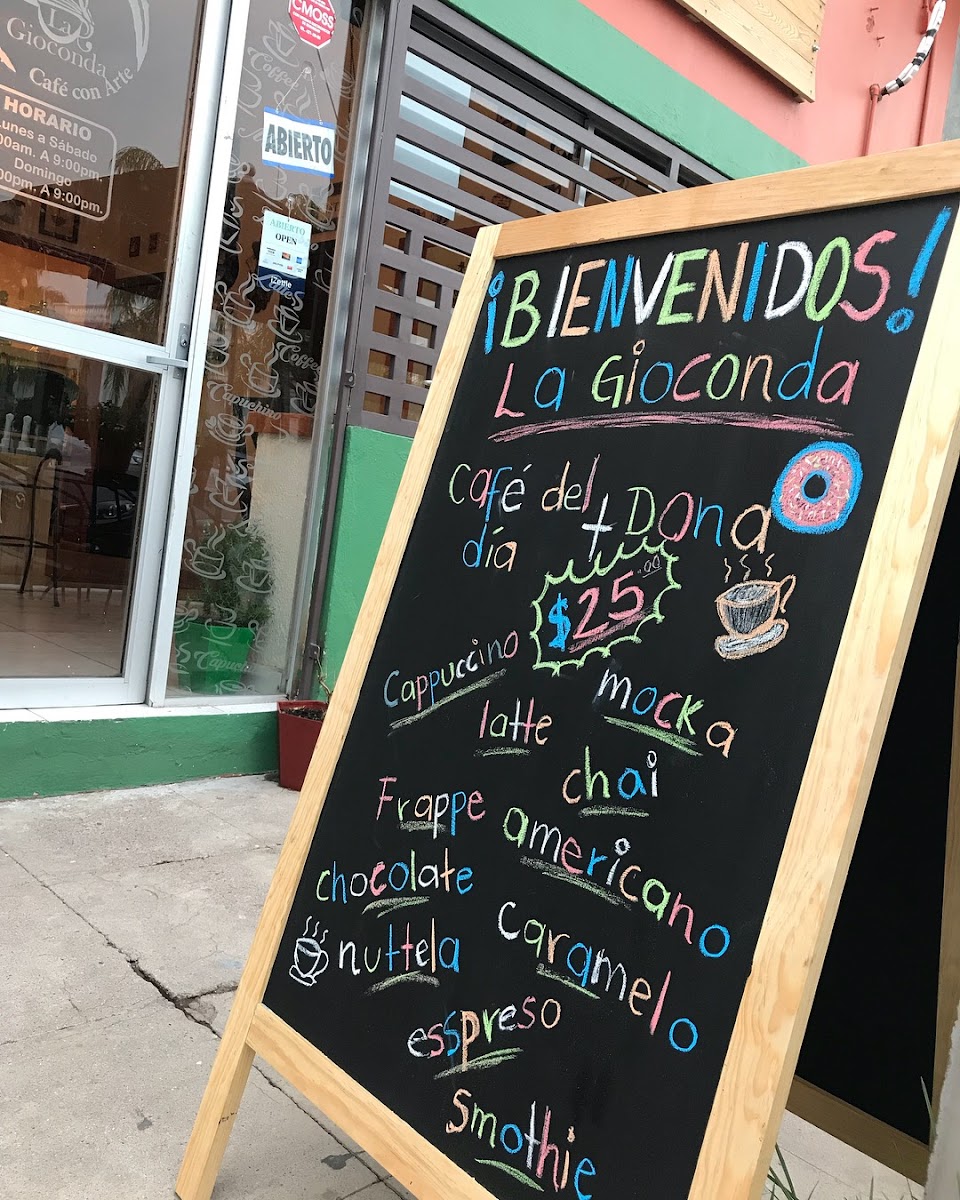 La
Gioconda
Café con Arte
HORARIO
Lunes a Sábado
00am. A 9:00pm.
Domingo
00pm. A 9:00pm.
CMOSS
Coffee
ABIERTO
ABIERTO
OPEN
Coffee
Capuchino
Capuc
¡BIENVENIDOS!
La Gioconda
Café del día + Dona
$25.00
Cappuccino
mocka
latte
chai
Frappe
americano
chocolate
Caramelo
nuttela
esspreso
Smothie